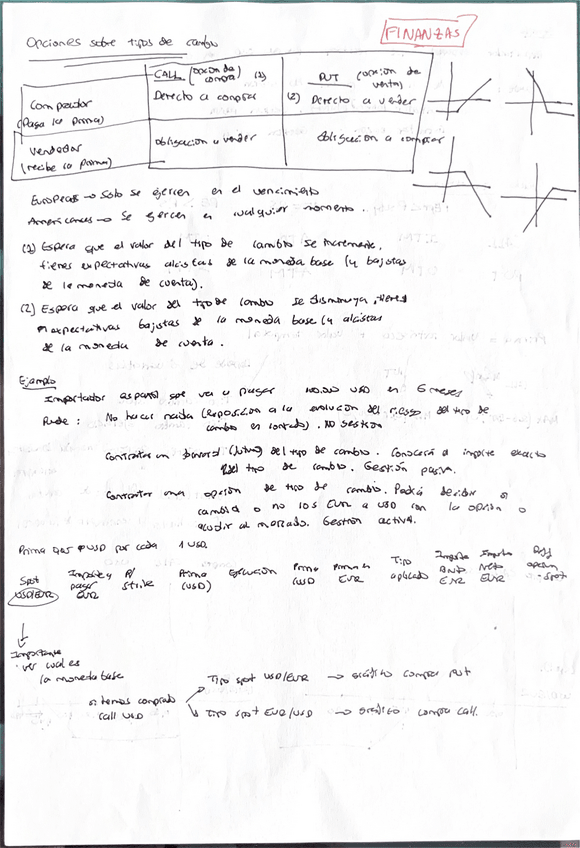 FINANZAS
Opciones sobre tipos de cambio
CALL (opción de compra) (1)
PUT (opción de venta)
Comprador (Paga la prima)
Derecho a comprar
(2) Derecho a vender
Vendedor (recibe la prima)
Obligación a vender
Obligación a comprar
Europeas → Solo se ejercen en el vencimiento
Americanas → Se ejercen en cualquier momento.
(1) Espera que el valor del tipo de cambio se incremente,
tienes expectativas alcistas de la moneda base (y bajistas
de la moneda de cuenta).
(2) Espera que el valor del tipo de cambio se disminuya, tienes
expectativas bajistas de la moneda base (y alcistas
de la moneda de cuenta.
Ejemplo
Importador español que va a pagar 100.000 USD en 6 meses
Puede: No hacer nada (exposición a la evolución del riesgo del tipo de
cambio en contado). No gestión
Contratar un forward (futuro) del tipo de cambio. Conocerá el importe exacto
del tipo de cambio. Gestión pasiva.
Contratar una opción de tipo de cambio. Podrá decidir si
cambia o no los EUR a USD con la opción o
acudir al mercado. Gestión activa.
Prima USD por cada 1 USD.
Spot USD/EUR
Importe a pagar EUR
P/ strike
Prima (USD)
Ejecución
Prima USD
Prima en EUR
Tipo aplicado
Importe Bruto EUR
Importe Neto EUR
Diff opción - Spot
Importante
ver cual es
la moneda base
si temos comprado
call USD
Tipo spot USD/EUR → gráfico compra PUT
Tipo spot EUR/USD → gráfico compra call.